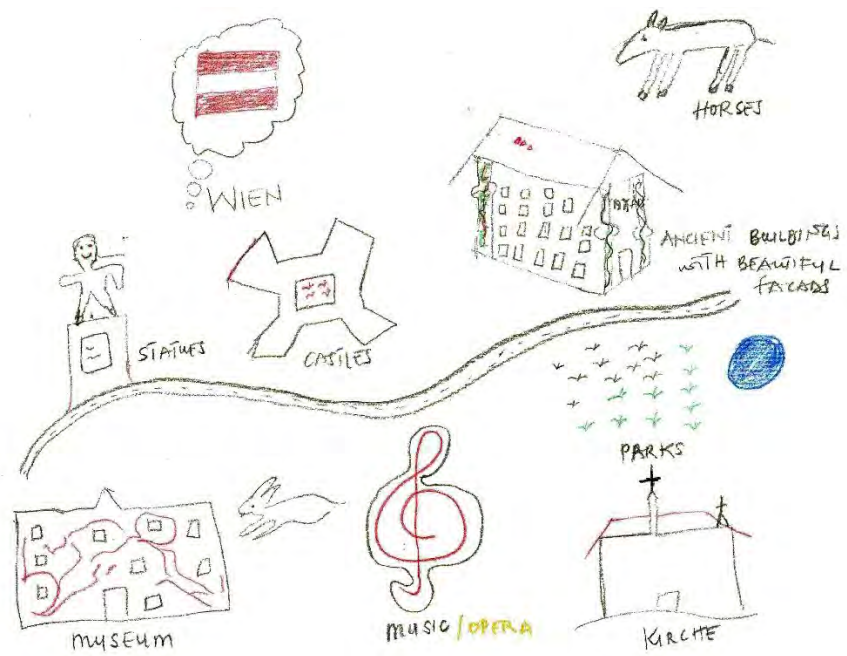 HORSES
WIEN
ANCIENT BUILDINGS
WITH BEAUTIFUL
FACADS
STATUES
CASTLES
PARKS
MUSEUM
MUSIC/OPERA
KIRCHE